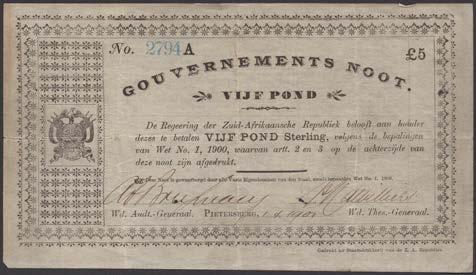 No. 2794 A £5
GOUVERNEMENTS NOOT.
VIJF POND
De Regeering der Zuid-Afrikaansche Republiek belooft aan houder
dezes te betalen VIJF POND Sterling, volgens de bepalingen
van Wet No. 1, 1900, waarvan artt. 2 en 3 op de achterzijde van
deze noot zijn afgedrukt.
Deze Noot is gewaarborgd door alle Vaste Eigendommen van den Staat, Wet No. 1, 1900.
Wd. Audt.-Generaal. PIETERSBURG, Wd. Thes.-Generaal.
Gedrukt ter Staatsdrukkerij van de Z. A. Republiek